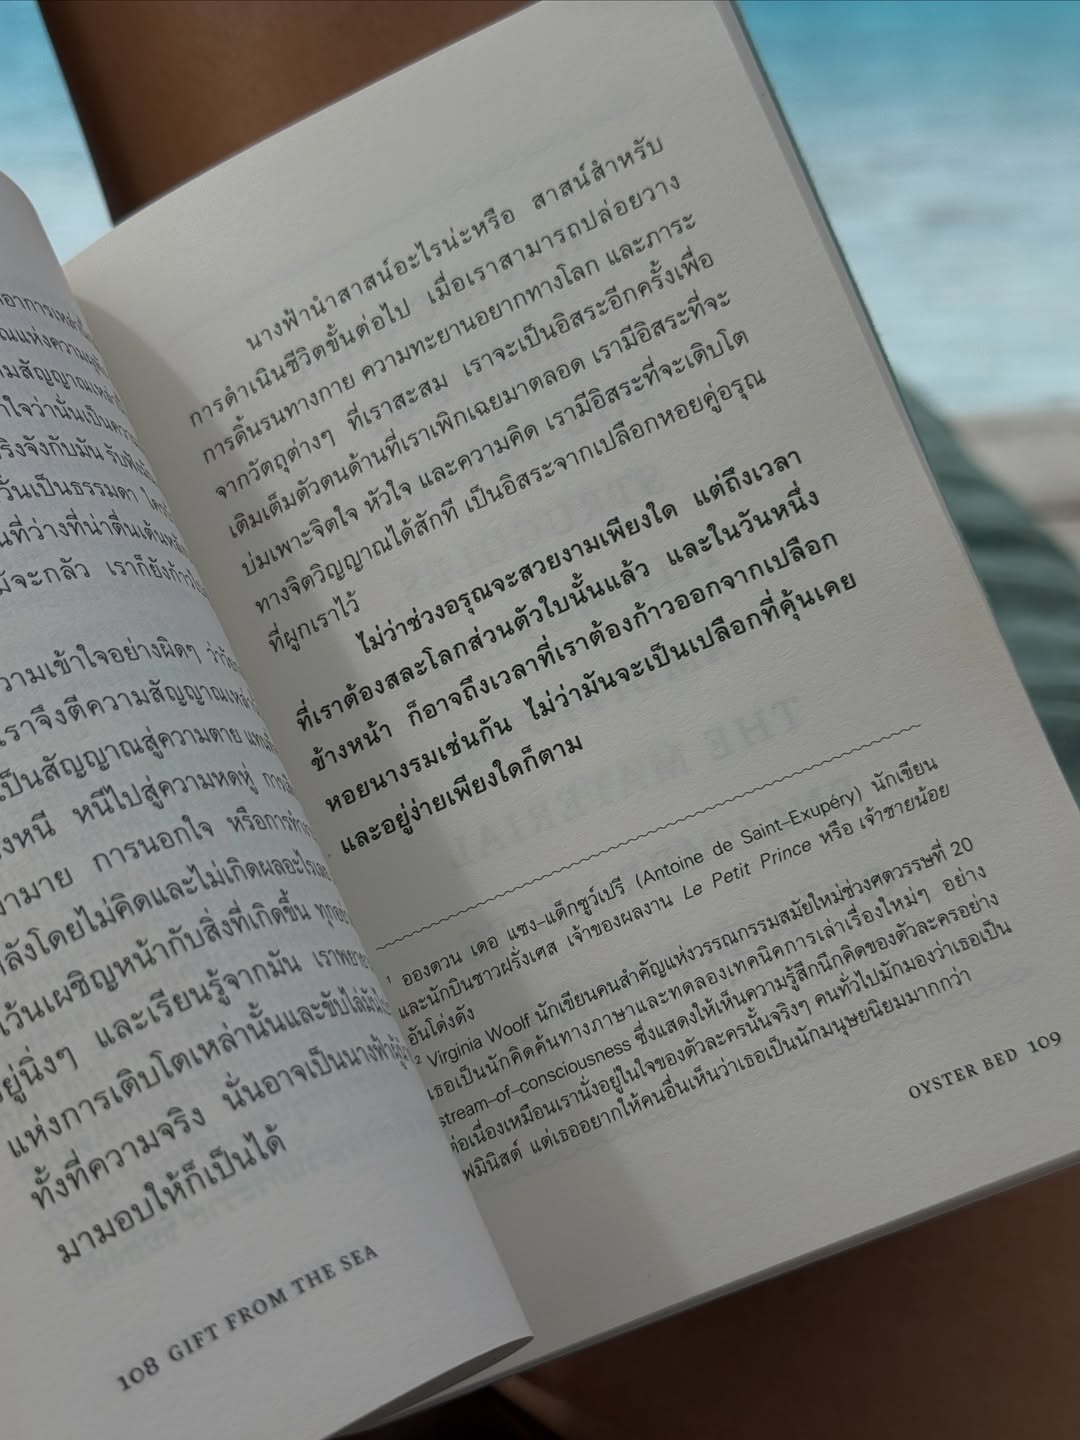 ความเข้าใจอย่างผิดๆ
เราจึงตีความสัญญาณเหล่า
เป็นสัญญาณสู่ความตาย
หนี หนีไปสู่ความหดหู่
การนอกใจ หรือการ
โดยไม่คิดและไม่เกิดผลอะไร
เว้นเผชิญหน้ากับสิ่งที่เกิดขึ้น
อยู่นิ่งๆ และเรียนรู้จากมัน
แห่งการเติบโตเหล่านั้นและขับไล่มัน
ทั้งที่ความจริง นั่นอาจเป็นนางฟ้า
มามอบให้ก็เป็นได้
108 GIFT FROM THE SEA
นางฟ้านำสาสน์อะไรน่ะหรือ สาสน์สำหรับ
การดำเนินชีวิตขั้นต่อไป เมื่อเราสามารถปล่อยวาง
การดิ้นรนทางกาย ความทะยานอยากทางโลก และภาระ
จากวัตถุต่างๆ ที่เราสะสม เราจะเป็นอิสระอีกครั้งเพื่อ
เติมเต็มตัวตนด้านที่เราเพิกเฉยมาตลอด เรามีอิสระที่จะ
บ่มเพาะจิตใจ หัวใจ และความคิด เรามีอิสระที่จะเติบโต
ทางจิตวิญญาณได้สักที เป็นอิสระจากเปลือกหอยคู่อรุณ
ที่ผูกเราไว้
ไม่ว่าช่วงอรุณจะสวยงามเพียงใด แต่ถึงเวลา
ที่เราต้องสละโลกส่วนตัวใบนั้นแล้ว และในวันหนึ่ง
ข้างหน้า ก็อาจถึงเวลาที่เราต้องก้าวออกจากเปลือก
หอยนางรมเช่นกัน ไม่ว่ามันจะเป็นเปลือกที่คุ้นเคย
และอยู่ง่ายเพียงใดก็ตาม
¹ อองตวน เดอ แซง-แด็กซูว์เปรี (Antoine de Saint-Exupéry) นักเขียน
และนักบินชาวฝรั่งเศส เจ้าของผลงาน Le Petit Prince หรือ เจ้าชายน้อย
อันโด่งดัง
² Virginia Woolf นักเขียนคนสำคัญแห่งวรรณกรรมสมัยใหม่ช่วงศตวรรษที่ 20
เธอเป็นนักคิดค้นทางภาษาและทดลองเทคนิคการเล่าเรื่องใหม่ๆ อย่าง
stream-of-consciousness ซึ่งแสดงให้เห็นความรู้สึกนึกคิดของตัวละครอย่าง
ต่อเนื่องเหมือนเรานั่งอยู่ในใจของตัวละครนั้นจริงๆ คนทั่วไปมักมองว่าเธอเป็น
เฟมินิสต์ แต่เธออยากให้คนอื่นเห็นว่าเธอเป็นนักมนุษยนิยมมากกว่า
OYSTER BED 109